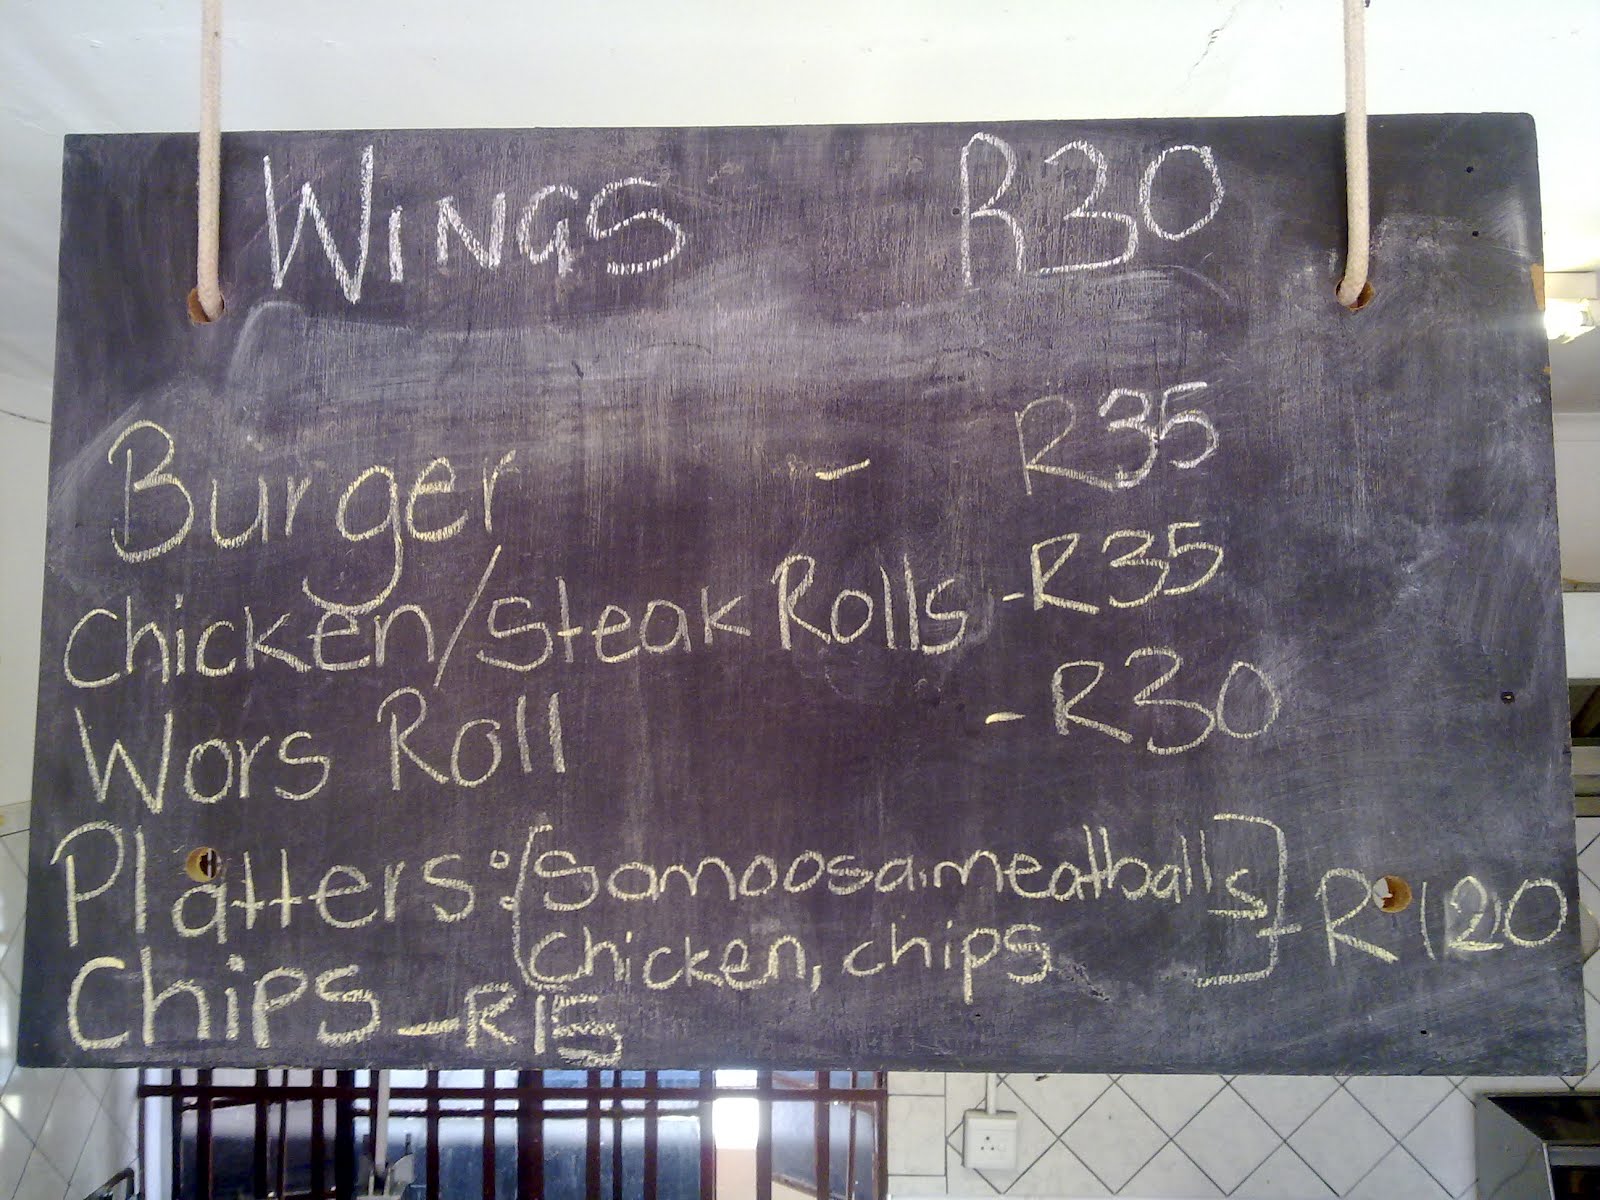 WiNGS R30
Burger - R35
Chicken/Steak Rolls - R35
Wors Roll - R30
Platters: [Samoosa, meatballs
Chicken, chips] - R120
Chips - R15